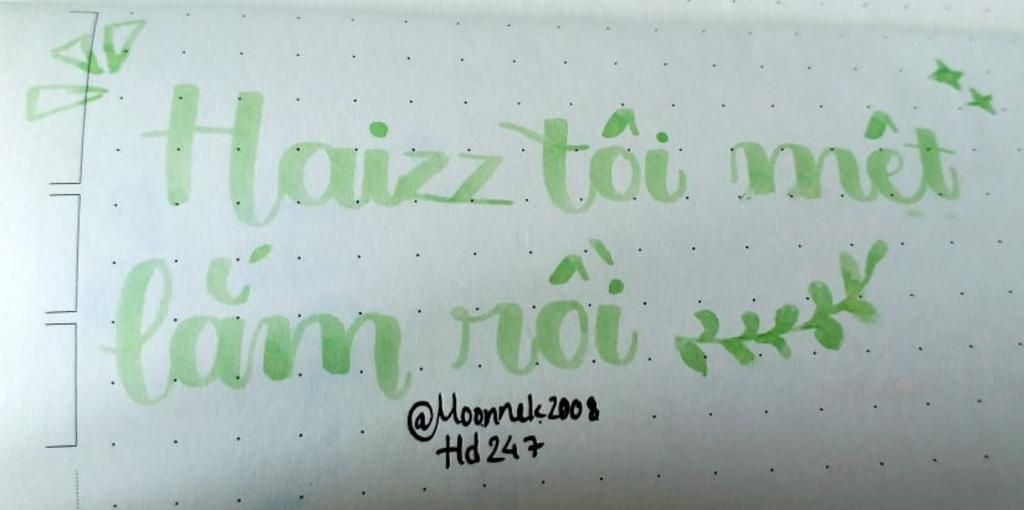 Haizz tôi mêt
lắm rồi
@Moonnek2008
Hd 247